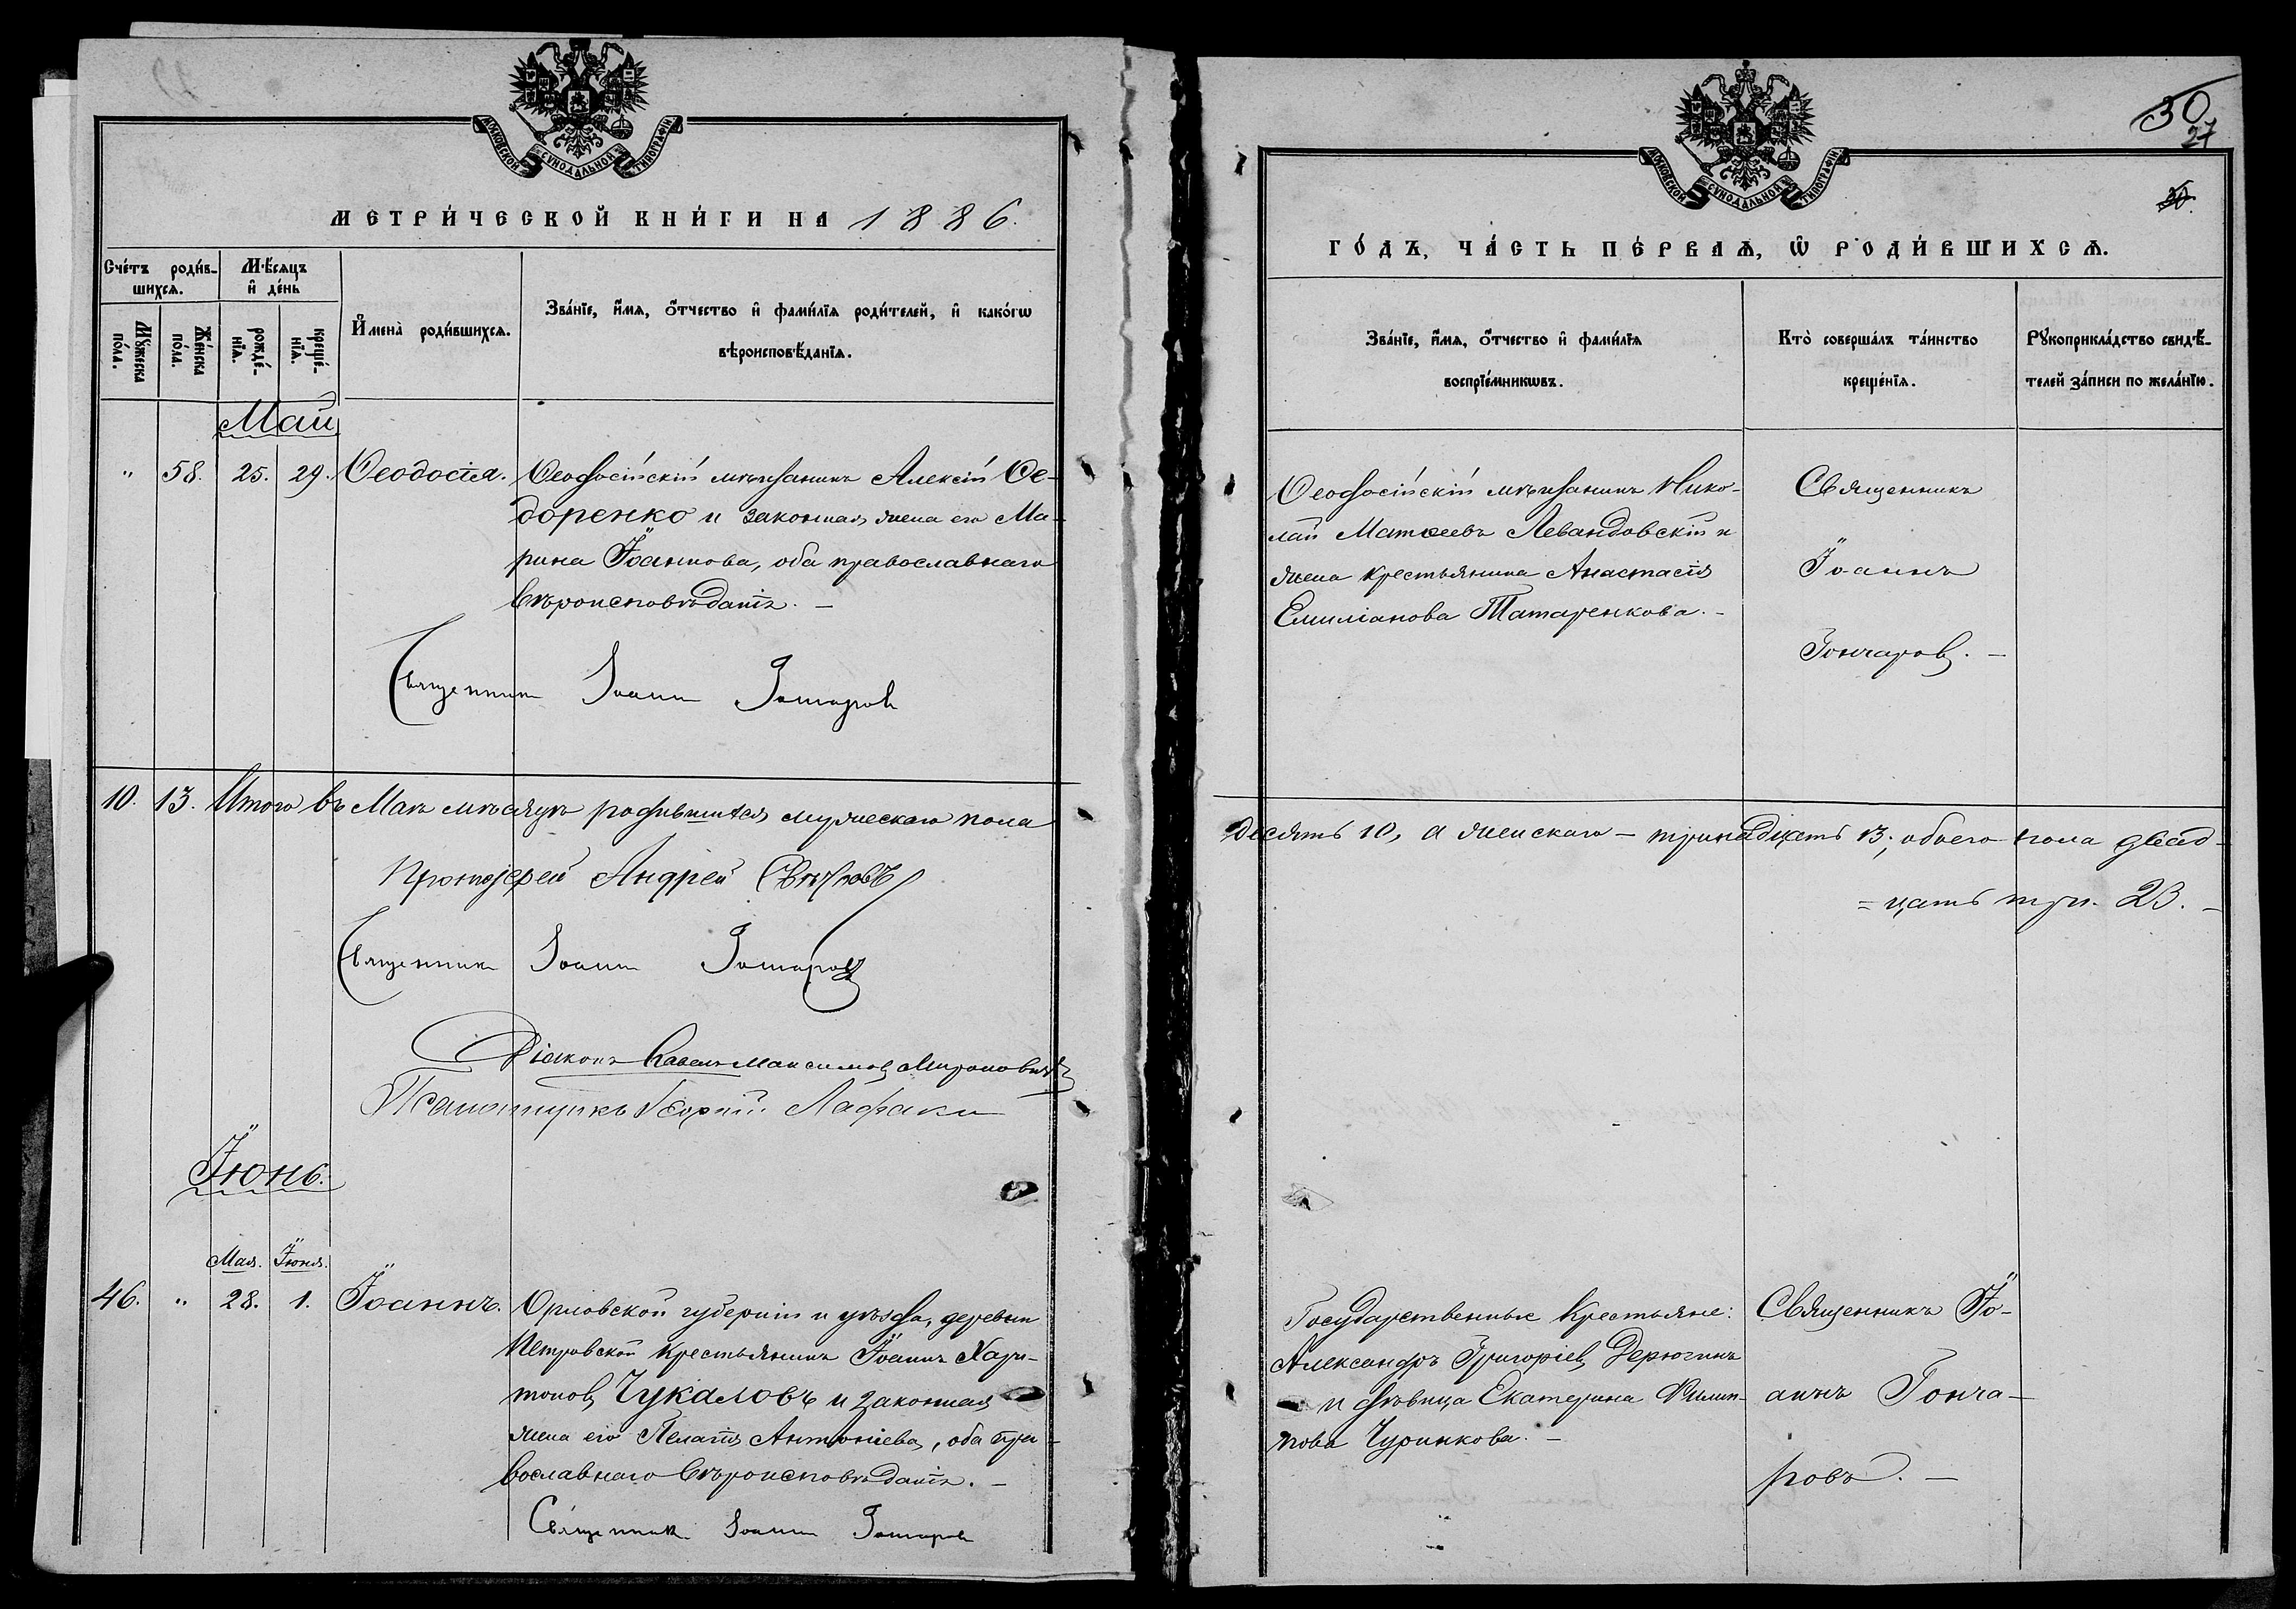 МОСКОВСКОЙ СѴНОДАЛЬНОЙ ТИПОГРАФІИ
МЕТРИ́ЧЕСКОЙ КНИ́ГИ НА 1886.
Сче́тъ роди́в-
шихся.
Мѣ́сяцъ
и҆ де́нь
Мꙋ́жеска по́ла.
Же́нска по́ла.
рожде́-нїѧ.
креще́-нїѧ.
И҆мена̀ роди́вшихсѧ.
Зва́нїе, и҆́мѧ, ѻ҆́тчество и҆ фами́лїѧ роди́телей, и҆ како́гѡ
вѣроисповѣ́данїѧ.
Май
" 58. 25. 29. Ѳеодосія. Ѳеодосійскій мѣщанинъ Алексій Ѳе-
доренко и законная жена его Ма-
рина Іоаннова, оба православнаго
вѣроисповѣданія. –
Священник Іоанн Гончаров
10. 13. Итого въ Маѣ мѣсяцѣ родившихся мужескаго пола
Протоіерей Андрей
Священник Іоанн Гончаров
Діаконъ Павелъ Максимов Мироновичъ
Псаломщикъ Георгій
Іюнь.
Мая. Іюня.
46. " 28. 1. Іоаннъ. Орловской губерніи и уѣзда, деревни
Петровской крестьянинъ Іоаннъ Хари-
тонов Чукаловъ и законная
жена его Пелагія Антоніева, оба пра-
вославнаго вѣроисповѣданія. –
Священник Іоанн Гончаров
30
27
30.
МОСКОВСКОЙ СѴНОДАЛЬНОЙ ТИПОГРАФІИ
ГО́ДЪ, ЧА́СТЬ ПЕ́РВАѦ, Ѡ҆ РОДИ́ВШИХСѦ.
Зва́нїе, и҆́мѧ, ѻ҆́тчество и҆ фами́лїѧ
воспрїе́мникѡвъ.
Кто̀ соверша́лъ та́инство
креще́нїѧ.
Рꙋкоприкла́дство свидѣ́-
телей за́писи по жела́нїю.
Ѳеодосійскій мѣщанинъ Нико-
лай Матѳеевъ Левандовскій и
жена крестьянина Анастасія
Емиліанова Татаренкова. –
Священникъ
Іоаннъ
Гончаров. –
десять 10, а женскаго – тринадцать 13; обоего пола двад-
=цать три. 23. –
Государственные крестьяне:
Александръ Григоріев Дерюгинъ
и дѣвица Екатерина Филип-
пова Чуринкова. –
Священникъ Іо-
аннъ Гонча-
ровъ. –